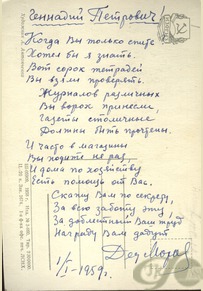 Геннадий Петрович!
Когда Вы только спите
Хотел бы я знать.
Вот сорок тетрадей
Вы взяли проверять.
Журналов различных
Вы ворох принесли,
Газеты столичные
Должны быть прочтены.
И часто в магазины
Вы ходите не раз,
И дома по хозяйству
Есть помощь от Вас.
Скажу Вам по секрету,
За всю заботу эту,
За доблестный Ваш труд
Награду Вам дадут
Дед Мороз
1/I-1959г.